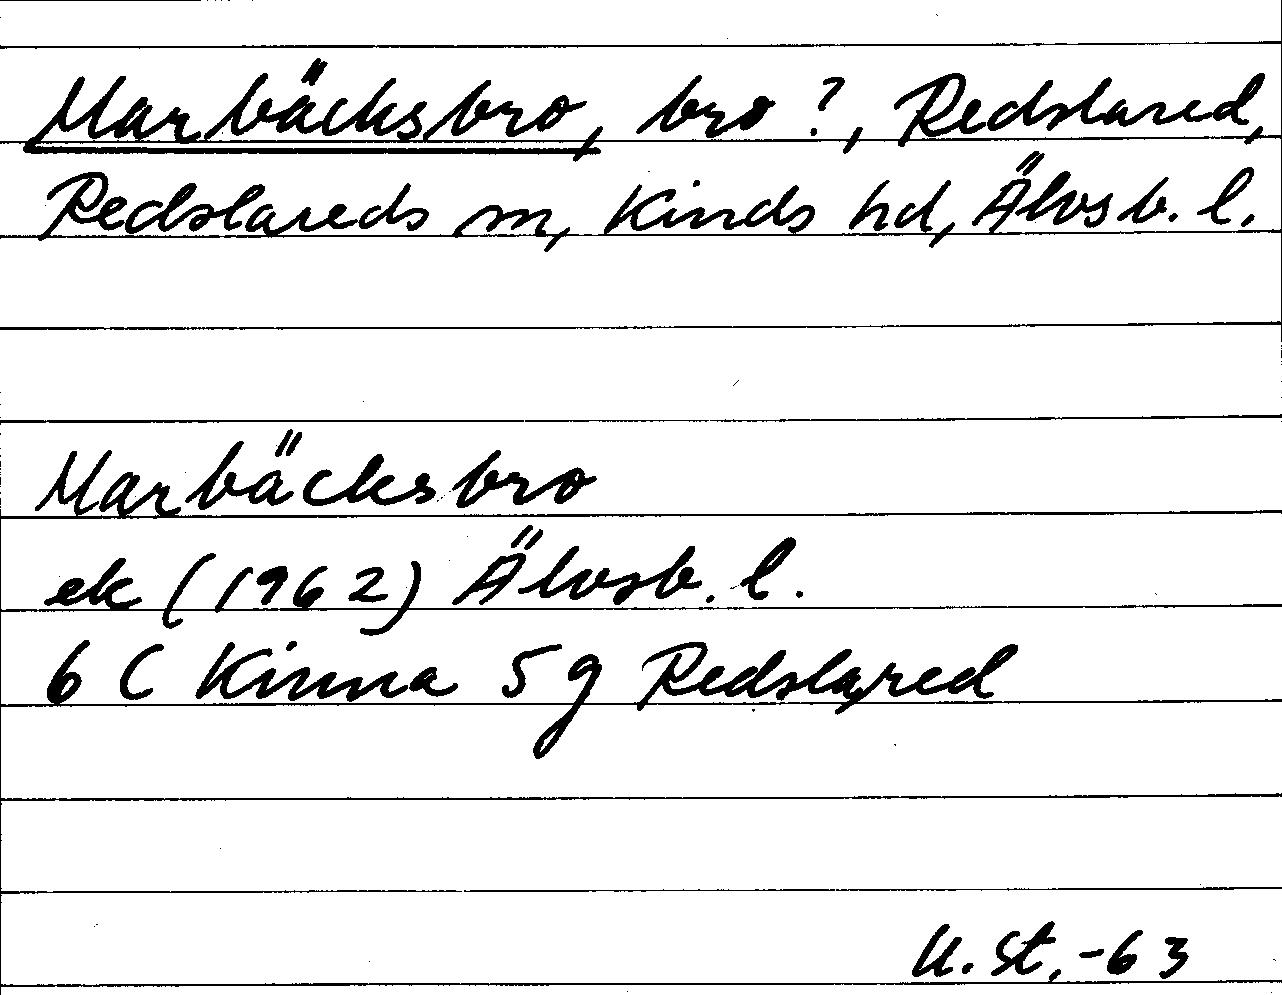 Marbäcksbro, bro?, Redslared,
Redslareds sn, Kinds hd, Älvsb. l.
Marbäcksbro
ek (1962) Älvsb. l.
6 C Kinna 5 g Redslared
U. St. -63